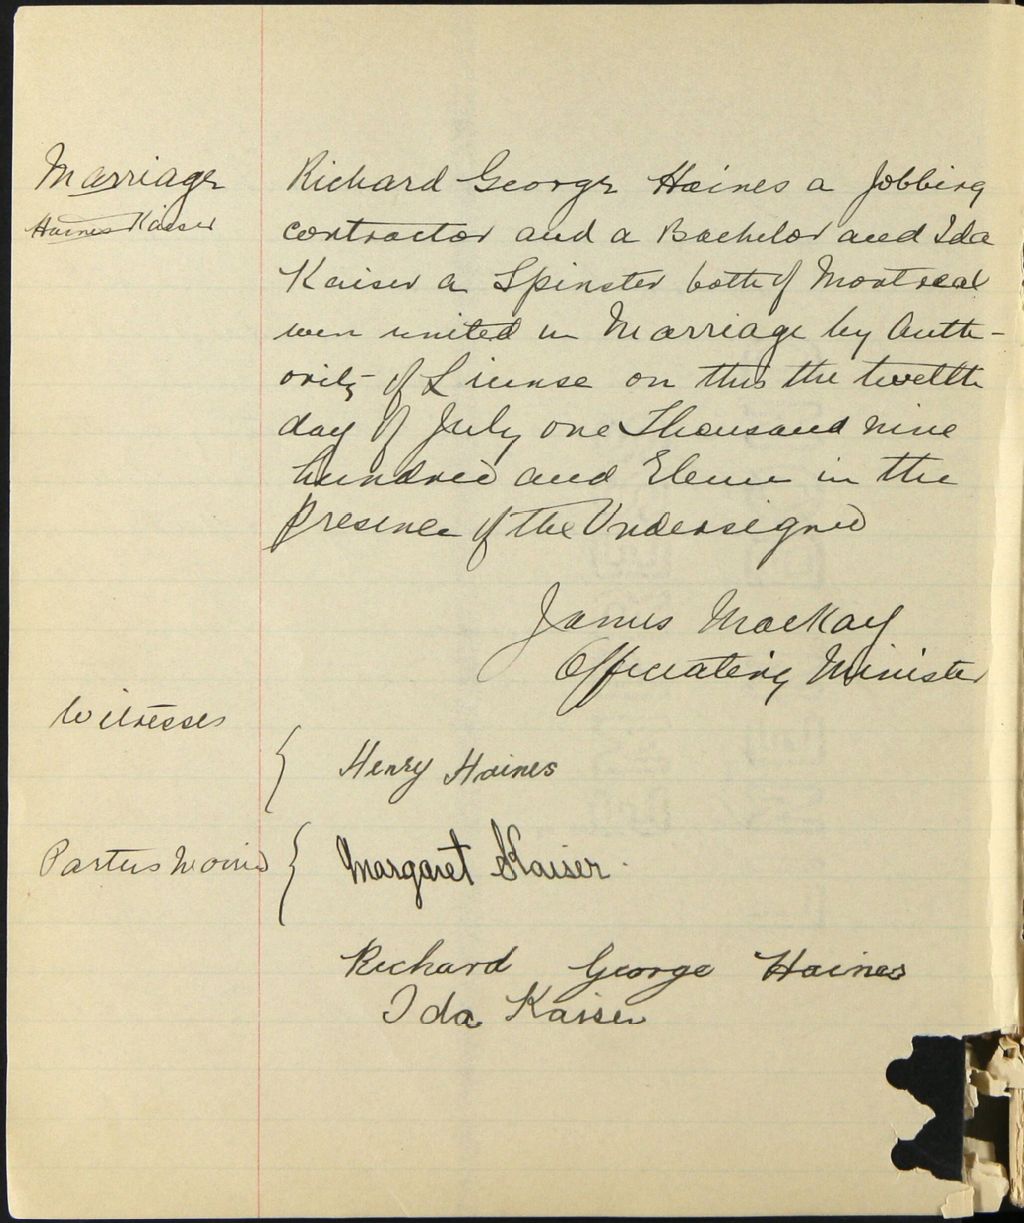 Marriage
Haines Kaiser
Richard George Haines a Jobbing
contractor and a Bachelor and Ida
Kaiser a Spinster both of Montreal
were united in Marriage by Auth-
ority of License on this the twelfth
day of July one Thousand nine
hundred and Eleven in the
presence of the Undersigned
James MacKay
Officiating Minister
Witnesses
Henry Haines
Parties
Margaret Kaiser.
Richard George Haines
Ida Kaiser